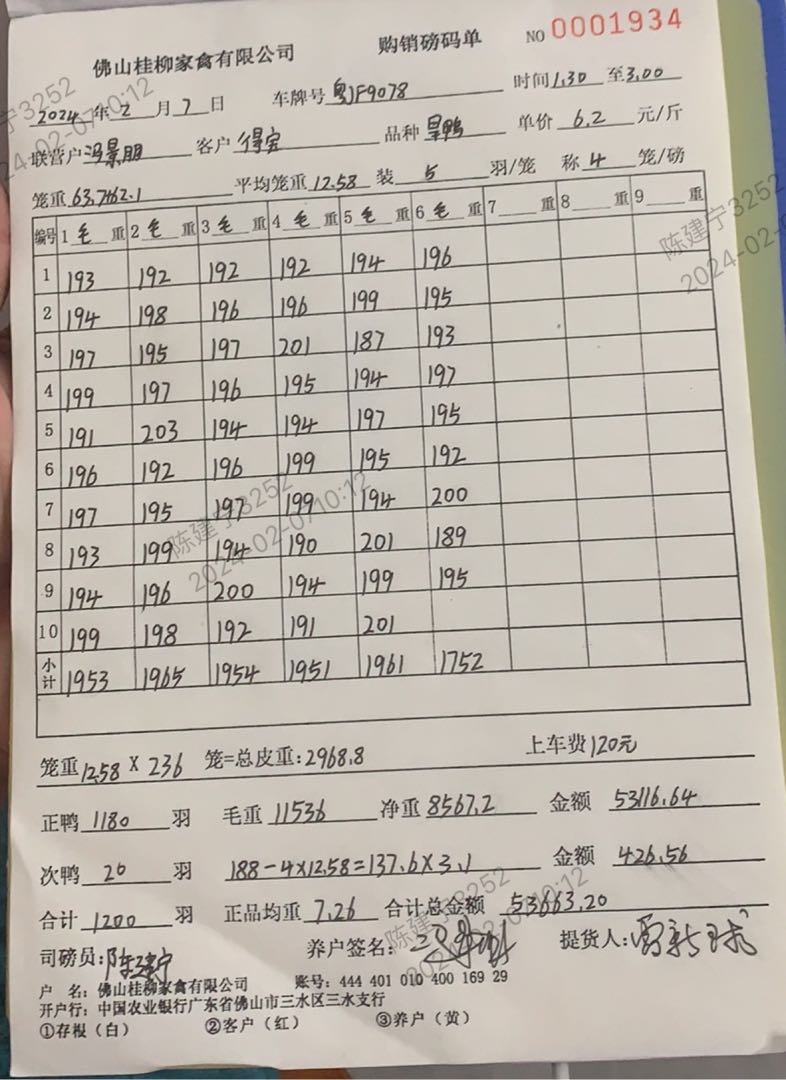 佛山桂柳家禽有限公司 购销磅码单 NO 0001934
2024年2月7日 车牌号粤JF9078 时间1.30至3.00
联营户冯景朋 客户得宝 品种 单价6.2元/斤
笼重63.7+62.1 平均笼重12.58 装5羽/笼 称4笼/磅
编号 1毛重 2毛重 3毛重 4毛重 5毛重 6毛重 7重 8重 9重
1 193 192 192 192 194 196
2 194 198 196 196 199 195
3 197 195 197 201 187 193
4 199 197 196 195 194 197
5 191 203 194 194 197 195
6 196 192 196 199 195 192
7 197 195 197 199 194 200
8 193 199 194 190 201 189
9 194 196 200 194 199 195
10 199 198 192 191 201
小计 1953 1965 1954 1951 1961 1752
笼重12.58×236笼=总皮重:2968.8 上车费120元
正鸭1180羽 毛重11536 净重8567.2 金额53116.64
次鸭20羽 188-4×12.58=137.6×3.1 金额426.56
合计1200羽 正品均重7.26 合计总金额53663.20
司磅员:陈建宁 养户签名: 提货人:
户 名:佛山桂柳家禽有限公司 账号:444 401 010 400 169 29
开户行:中国农业银行广东省佛山市三水区三水支行
①存根(白) ②客户(红) ③养户(黄)
陈建宁3252
2024-02-07 10:12